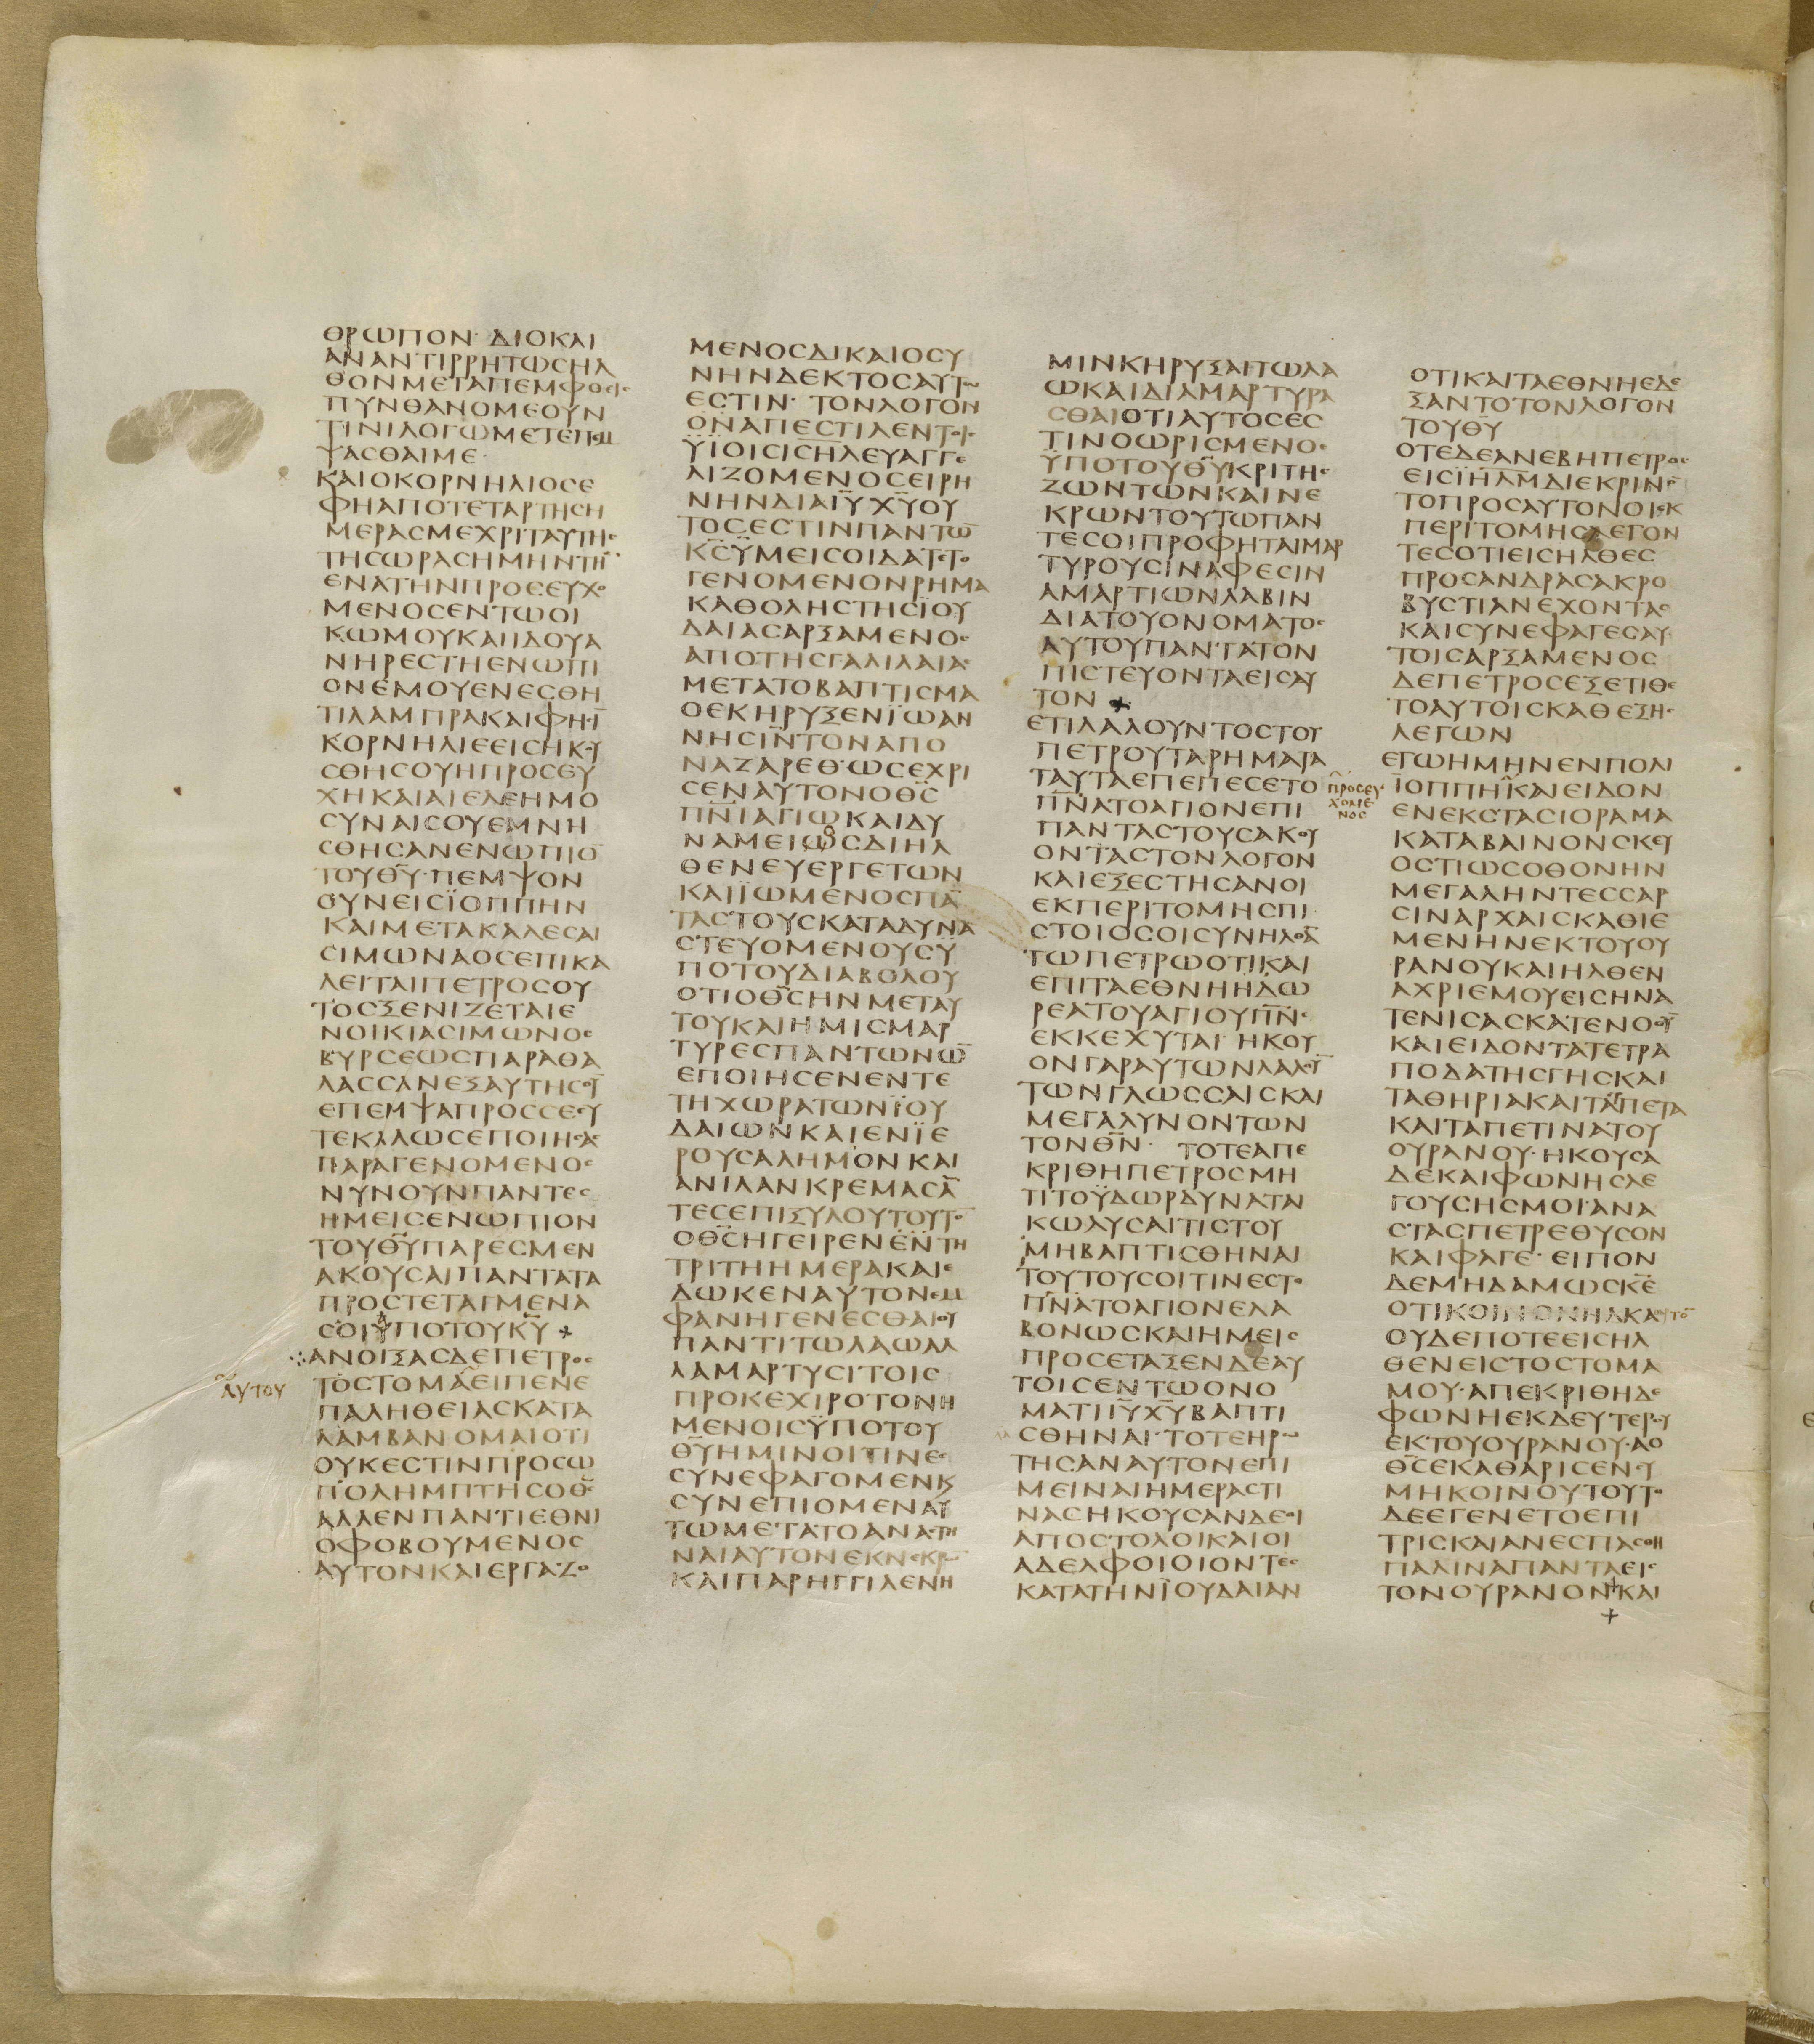 ΘΡΩΠΟΝ· ΔΙΟΚΑΙ
ΑΝΑΝΤΙΡΡΗΤΩϹΗΛ
ΘΟΝΜΕΤΑΠΕΜΦΘΕΙϹ
ΠΥΝΘΑΝΟΜΕΟΥΝ
ΤΙΝΙΛΟΓΩΜΕΤΕΠΕΜ
ΨΑϹΘΑΙΜΕ·
ΚΑΙΟΚΟΡΝΗΛΙΟϹΕ
ΦΗΑΠΟΤΕΤΑΡΤΗϹΗ
ΜΕΡΑϹΜΕΧΡΙΤΑΥΤΗϹ
ΤΗϹΩΡΑϹΗΜΗΝΤΗ̅
ΕΝΑΤΗΝΠΡΟϹΕΥΧΟ
ΜΕΝΟϹΕΝΤΩΟΙ
ΚΩΜΟΥΚΑΙΙΔΟΥΑ
ΝΗΡΕϹΤΗΕΝΩΠΙ
ΟΝΕΜΟΥΕΝΕϹΘΗ
ΤΙΛΑΜΠΡΑΚΑΙΦΗϹΙ̅
ΚΟΡΝΗΛΙΕΕΙϹΗΚΟΥ
ϹΘΗϹΟΥΗΠΡΟϹΕΥ
ΧΗΚΑΙΑΙΕΛΕΗΜΟ
ϹΥΝΑΙϹΟΥΕΜΝΗ
ϹΘΗϹΑΝΕΝΩΠΙΟ̅
ΤΟΥΘ̅Υ̅·ΠΕΜΨΟΝ
ΟΥΝΕΙϹΪΟΠΠΗΝ
ΚΑΙΜΕΤΑΚΑΛΕϹΑΙ
ϹΙΜΩΝΑΟϹΕΠΙΚΑ
ΛΕΙΤΑΙΠΕΤΡΟϹΟΥ
ΤΟϹΞΕΝΙΖΕΤΑΙΕ
ΝΟΙΚΙΑϹΙΜΩΝΟϹ
ΒΥΡϹΕΩϹΠΑΡΑΘΑ
ΛΑϹϹΑΝΕΞΑΥΤΗϹΟΥ̅
ΕΠΕΜΨΑΠΡΟϹϹΕϹΥ
ΤΕΚΑΛΩϹΕΠΟΙΗϹΑϹ
ΠΑΡΑΓΕΝΟΜΕΝΟϹ
ΝΥΝΟΥΝΠΑΝΤΕϹ
ΗΜΕΙϹΕΝΩΠΙΟΝ
ΤΟΥΘ̅Υ̅ΠΑΡΕϹΜΕΝ
ΑΚΟΥϹΑΙΠΑΝΤΑΤΑ
ΠΡΟϹΤΕΤΑΓΜΕΝΑ
ϹΟΙΫΠΟΤΟΥΚ̅Υ̅ +
ΑΝΟΙΞΑϹΔΕΠΕΤΡΟϹ
ΤΟϹΤΟΜΑΕΙΠΕΝΕ
ΑΥΤΟΥ
ΠΑΛΗΘΕΙΑϹΚΑΤΑ
ΛΑΜΒΑΝΟΜΑΙΟΤΙ
ΟΥΚΕϹΤΙΝΠΡΟϹΩ
ΠΟΛΗΜΠΤΗϹΟΘ̅Ϲ̅
ΑΛΛΕΝΠΑΝΤΙΕΘΝΙ
ΟΦΟΒΟΥΜΕΝΟϹ
ΑΥΤΟΝΚΑΙΕΡΓΑΖΟ
ΜΕΝΟϹΔΙΚΑΙΟϹΥ
ΝΗΝΔΕΚΤΟϹΑΥΤΩ
ΕϹΤΙΝ· ΤΟΝΛΟΓΟΝ
ΟΝΑΠΕϹΤΙΛΕΝΤΟΙϹ
ΫΪΟΙϹΙϹΗΛΕΥΑΓΓΕ
ΛΙΖΟΜΕΝΟϹΕΙΡΗ
ΝΗΝΔΙΑΙ̅Υ̅Χ̅Υ̅ΟΥ
ΤΟϹΕϹΤΙΝΠΑΝΤΩ̅
Κ̅Ϲ̅ΫΜΕΙϹΟΙΔΑΤΕΤΟ
ΓΕΝΟΜΕΝΟΝΡΗΜΑ
ΚΑΘΟΛΗϹΤΗϹΪΟΥ
ΔΑΙΑϹΑΡΞΑΜΕΝΟϹ
ΑΠΟΤΗϹΓΑΛΙΛΑΙΑϹ
ΜΕΤΑΤΟΒΑΠΤΙϹΜΑ
ΟΕΚΗΡΥΞΕΝΪΩΑΝ
ΝΗϹΙ̅Ν̅ΤΟΝΑΠΟ
ΝΑΖΑΡΕΘ·ΩϹΕΧΡΙ
ϹΕΝΑΥΤΟΝΟΘ̅Ϲ̅
Π̅Ν̅Ι̅ΑΓΙΩΚΑΙΔΥ
ΝΑΜΕΙΩϹΔΙΗΛ
ΘΕΝΕΥΕΡΓΕΤΩΝ
ΚΑΙΪΩΜΕΝΟϹΠΑ̅
ΤΑϹΤΟΥϹΚΑΤΑΔΥΝΑ
ϹΤΕΥΟΜΕΝΟΥϹΥ
ΠΟΤΟΥΔΙΑΒΟΛΟΥ
ΟΤΙΟΘ̅Ϲ̅ΗΝΜΕΤΑΥ
ΤΟΥΚΑΙΗΜΙϹΜΑΡ
ΤΥΡΕϹΠΑΝΤΩΝΩ̅
ΕΠΟΙΗϹΕΝΕΝΤΕ
ΤΗΧΩΡΑΤΩΝΪΟΥ
ΔΑΙΩΝΚΑΙΕΝΪΕ
ΡΟΥϹΑΛΗΜ·ΟΝΚΑΙ
ΑΝΙΛΑΝΚΡΕΜΑϹΑ̅
ΤΕϹΕΠΙΞΥΛΟΥΤΟΥΤΟ̅
ΟΘ̅Ϲ̅ΗΓΕΙΡΕΝΕΝΤΗ
ΤΡΙΤΗΗΜΕΡΑΚΑΙΕ
ΔΩΚΕΝΑΥΤΟΝΕΜ
ΦΑΝΗΓΕΝΕϹΘΑΙΟΥ
ΠΑΝΤΙΤΩΛΑΩΑΛ
ΛΑΜΑΡΤΥϹΙΤΟΙϹ
ΠΡΟΚΕΧΙΡΟΤΟΝΗ
ΜΕΝΟΙϹΫΠΟΤΟΥ
Θ̅Υ̅ΗΜΙΝΟΙΤΙΝΕϹ
ϹΥΝΕΦΑΓΟΜΕΝΚ
ϹΥΝΕΠΙΟΜΕΝΑΥ
ΤΩΜΕΤΑΤΟΑΝΑϹΤΗ
ΝΑΙΑΥΤΟΝΕΚΝΕΚΡΩ̅
ΚΑΙΠΑΡΗΓΓΙΛΕΝΗ
ΜΙΝΚΗΡΥΞΑΙΤΩΛΑ
ΩΚΑΙΔΙΑΜΑΡΤΥΡΑ
ϹΘΑΙΟΤΙΑΥΤΟϹΕϹ
ΤΙΝΟΩΡΙϹΜΕΝΟϹ
ΫΠΟΤΟΥΘ̅Υ̅ΚΡΙΤΗϹ
ΖΩΝΤΩΝΚΑΙΝΕ
ΚΡΩΝΤΟΥΤΩΠΑΝ
ΤΕϹΟΙΠΡΟΦΗΤΑΙΜΑΡ
ΤΥΡΟΥϹΙΝΑΦΕϹΙΝ
ΑΜΑΡΤΙΩΝΛΑΒΙΝ
ΔΙΑΤΟΥΟΝΟΜΑΤΟϹ
ΑΥΤΟΥΠΑΝΤΑΤΟΝ
ΠΙϹΤΕΥΟΝΤΑΕΙϹΑΥ
ΤΟΝ +
ΕΤΙΛΑΛΟΥΝΤΟϹΤΟΥ
ΠΕΤΡΟΥΤΑΡΗΜΑΤΑ
ΤΑΥΤΑΕΠΕΠΕϹΕΤΟ
Π̅Ν̅ΑΤΟΑΓΙΟΝΕΠΙ
ΠΑΝΤΑϹΤΟΥϹΑΚΟΥ
ΟΝΤΑϹΤΟΝΛΟΓΟΝ
ΚΑΙΕΞΕϹΤΗϹΑΝΟΙ
ΕΚΠΕΡΙΤΟΜΗϹΠΙ
ϹΤΟΙΟϹΟΙϹΥΝΗΛΘΑ̅
ΤΩΠΕΤΡΩΟΤΙΚΑΙ
ΕΠΙΤΑΕΘΝΗΗΔΩ
ΡΕΑΤΟΥΑΓΙΟΥΠ̅Ν̅Ϲ̅
ΕΚΚΕΧΥΤΑΙ· ΗΚΟΥ
ΟΝΓΑΡΑΥΤΩΝΛΑΛΟΥ̅
ΤΩΝΓΛΩϹϹΑΙϹΚΑΙ
ΜΕΓΑΛΥΝΟΝΤΩΝ
ΤΟΝΘ̅Ν̅· ΤΟΤΕΑΠΕ
ΚΡΙΘΗΠΕΤΡΟϹΜΗ
ΤΙΤΟΫΔΩΡΔΥΝΑΤΑΙ
ΚΩΛΥϹΑΙΤΙϹΤΟΥ
ΜΗΒΑΠΤΙϹΘΗΝΑΙ
ΤΟΥΤΟΥϹΟΙΤΙΝΕϹΤΟ
Π̅Ν̅ΑΤΟΑΓΙΟΝΕΛΑ
ΒΟΝΩϹΚΑΙΗΜΕΙϹ
ΠΡΟϹΕΤΑΞΕΝΔΕΑΥ
ΤΟΙϹΕΝΤΩΟΝΟ
ΜΑΤΙΙ̅Υ̅Χ̅Υ̅ΒΑΠΤΙ
ϹΘΗΝΑΙ·ΤΟΤΕΗΡΩ
ΤΗϹΑΝΑΥΤΟΝΕΠΙ
ΜΕΙΝΑΙΗΜΕΡΑϹΤΙ
ΝΑϹΗΚΟΥϹΑΝΔΕΟΙ
ΑΠΟϹΤΟΛΟΙΚΑΙΟΙ
ΑΔΕΛΦΟΙΟΙΟΝΤΕϹ
ΚΑΤΑΤΗΝΪΟΥΔΑΙΑΝ
ΟΤΙΚΑΙΤΑΕΘΝΗΕΔΕ
ΞΑΝΤΟΤΟΝΛΟΓΟΝ
ΤΟΥΘΥ
ΟΤΕΔΕΑΝΕΒΗΠΕΤΡΟϹ
ΕΙϹΪΗ̅Λ̅Μ̅ΔΙΕΚΡΙΝΟ̅
ΤΟΠΡΟϹΑΥΤΟΝΟΙΕΚ
ΠΕΡΙΤΟΜΗϹΛΕΓΟΝ
ΤΕϹΟΤΙΕΙϹΗΛΘΕϹ
ΠΡΟϹΑΝΔΡΑϹΑΚΡΟ
ΒΥϹΤΙΑΝΕΧΟΝΤΑϹ
ΚΑΙϹΥΝΕΦΑΓΕϹΑΥ
ΤΟΙϹΑΡΞΑΜΕΝΟϹ
ΔΕΠΕΤΡΟϹΕΞΕΤΙΘΕ
ΤΟΑΥΤΟΙϹΚΑΘΕΞΗϹ
ΛΕΓΩΝ
ΕΓΩΗΜΗΝΕΝΠΟΛΙ
ΪΟΠΠΗΚΑΙΕΙΔΟΝ
ΠΡΟϹΕΥ
ΧΟΜΕ
ΝΟϹ
ΕΝΕΚϹΤΑϹΙΟΡΑΜΑ
ΚΑΤΑΒΑΙΝΟΝϹΚΕΥ
ΟϹΤΙΩϹΟΘΟΝΗΝ
ΜΕΓΑΛΗΝΤΕϹϹΑΡ
ϹΙΝΑΡΧΑΙϹΚΑΘΙΕ
ΜΕΝΗΝΕΚΤΟΥΟΥ
ΡΑΝΟΥΚΑΙΗΛΘΕΝ
ΑΧΡΙΕΜΟΥΕΙϹΗΝΑ
ΤΕΝΙϹΑϹΚΑΤΕΝΟΟΥ̅
ΚΑΙΕΙΔΟΝΤΑΤΕΤΡΑ
ΠΟΔΑΤΗϹΓΗϹΚΑΙ
ΤΑΘΗΡΙΑΚΑΙΤΑΠΕΤΑ
ΚΑΙΤΑΠΕΤΙΝΑΤΟΥ
ΟΥΡΑΝΟΥ·ΗΚΟΥϹΑ
ΔΕΚΑΙΦΩΝΗϹΛΕ
ΓΟΥϹΗϹΜΟΙ·ΑΝΑ
ϹΤΑϹΠΕΤΡΕΘΥϹΟΝ
ΚΑΙΦΑΓΕ· ΕΙΠΟΝ
ΔΕΜΗΔΑΜΩϹΚ̅Ε̅
ΟΤΙΚΟΙΝΟΝΗΑΚΑ
ΟΥΔΕΠΟΤΕΕΙϹΗΛ
ΘΕΝΕΙϹΤΟϹΤΟΜΑ
ΜΟΥ·ΑΠΕΚΡΙΘΗΔΕ
ΦΩΝΗΕΚΔΕΥΤΕΡΟΥ
ΕΚΤΟΥΟΥΡΑΝΟΥ·ΑΟ
Θ̅Ϲ̅ΕΚΑΘΑΡΙϹΕΝϹΥ
ΜΗΚΟΙΝΟΥΤΟΥΤΟ
ΔΕΕΓΕΝΕΤΟΕΠΙ
ΤΡΙϹΚΑΙΑΝΕϹΠΑϹΘΗ
ΠΑΛΙΝΑΠΑΝΤΑΕΙϹ
ΤΟΝΟΥΡΑΝΟΝΚΑΙ